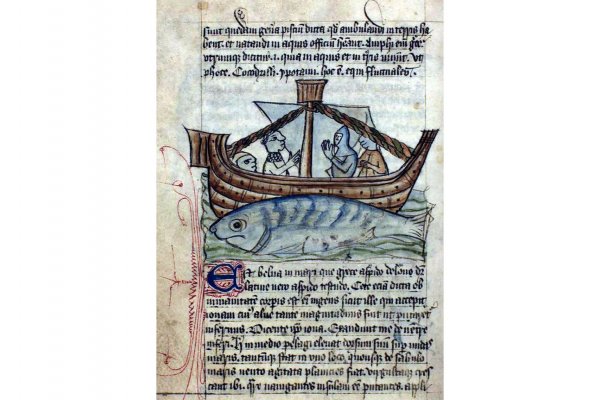 sunt quedam gen̄a pisciū dicta qd ambulandi in terris ha
bent. et natandi in aquis officiū h̄ant. Amphi em̄ gre
dicitur .i. qua in aquis et in t̄ris uiuūt. Vt
phoce. Cocodrilli. ypotami. hoc ē. equi fluctuales.
Est belua in mari que grece aspido delone dr̄
latine uero aspido testudo. Cete eciā dicta ob
inmanitatē corpis est em̄ ingens sicut ille qui accepit
ionam cuiꝰ aluꝰ tante magnitudinis fuit ut putaret
infernus. Dicente ip̄o iona. Exaudiuit me de uentre
inferi. in medio pelagi eleuat dorsum suū sup̄ undas
maris. tantūque stat in uno loco quousque de sabulo
maris uento agitata planicies fiat. cres
cant ibi. nauigantes insulam eē putantes. appli